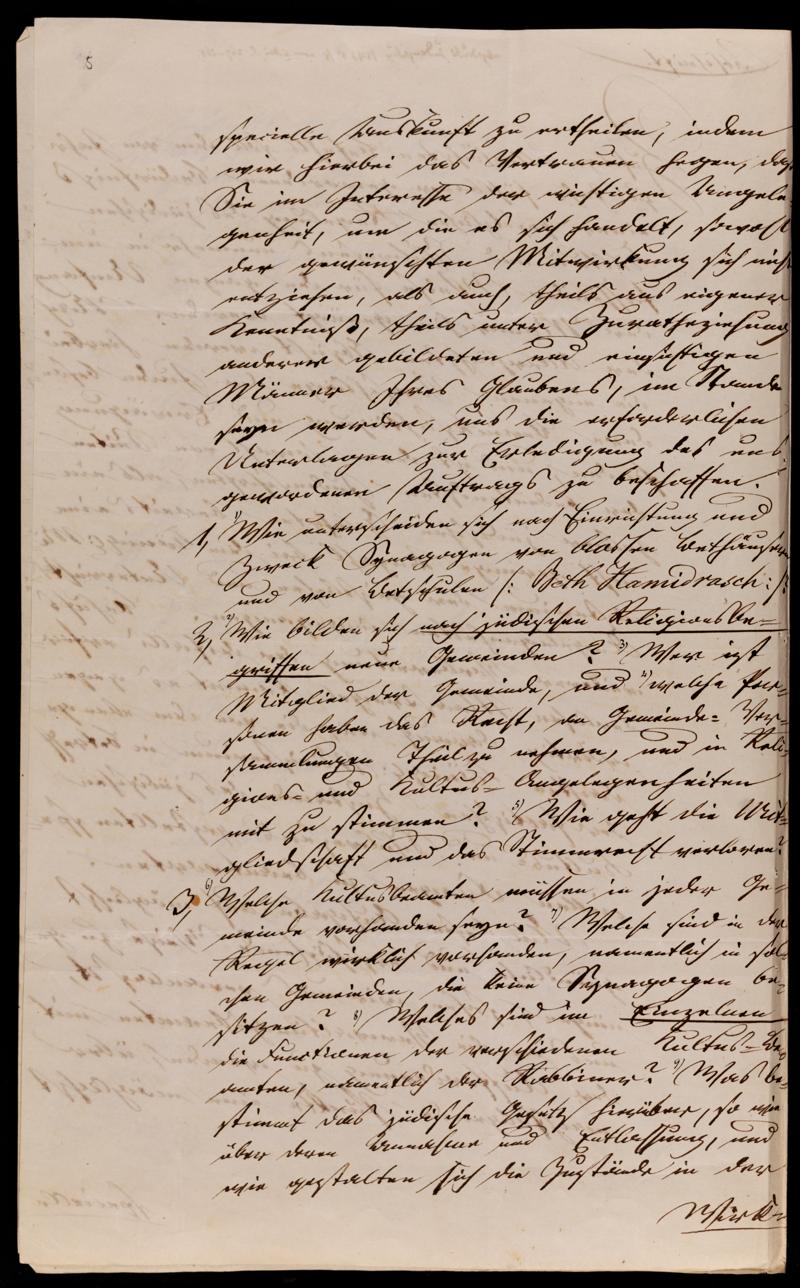 5
specielle Auskunft zu ertheilen, indem
wir hierbei das Vertrauen hegen, daß
Sie im Interesse der wichtigen Angele-
genheit, um die es sich handelt, sowohl
der gewünschten Mitwirkung sich nicht
entziehen, als auch, theils aus eigener
Kenntniß, theils unter Zuratheziehung
anderer gebildeten und einsichtigen
Männer Ihres Glaubens, im Stande
seyn werden, uns die erforderlichen
Unterlagen zur Erledigung des uns
gewordenen Auftrags zu beschaffen.
1, 1) Wie unterscheiden sich nach Einrichtung und
Zweck Synagogen von blossen Bethäusern
und von Betschulen /: Beth Hamidrasch :/?
2, 2) Wie bilden sich nach jüdischen Religionsbe-
griffen neue Gemeinden? 3) Wer ist
Mitglied der Gemeinde, und 4) welche Per-
sonen haben das Recht, an Gemeinde-Ver-
sammlungen Theil zu nehmen, und in Reli-
gions- und Kultus-Angelegenheiten
mit zu stimmen? 5) Wie geht die Mit-
gliedschaft und das Stimmrecht verloren?
3, 6) Welche Kultusbeamten müssen in jeder Ge-
meinde vorhanden seyn? 7) Welche sind in der
Regel wirklich vorhanden, namentlich in sol-
chen Gemeinden, die keine Synagogen be-
sitzen? 8) Welches sind im Einzelnen
die Functionen der verschiedenen Kultus-Be-
amten, namentlich der Rabbiner? 9) Was be-
stimmt das jüdische Gesetz hierüber, so wie
über deren Annahme und Entlassung, und
wie gestalten sich die Zustände in der
Wirk-